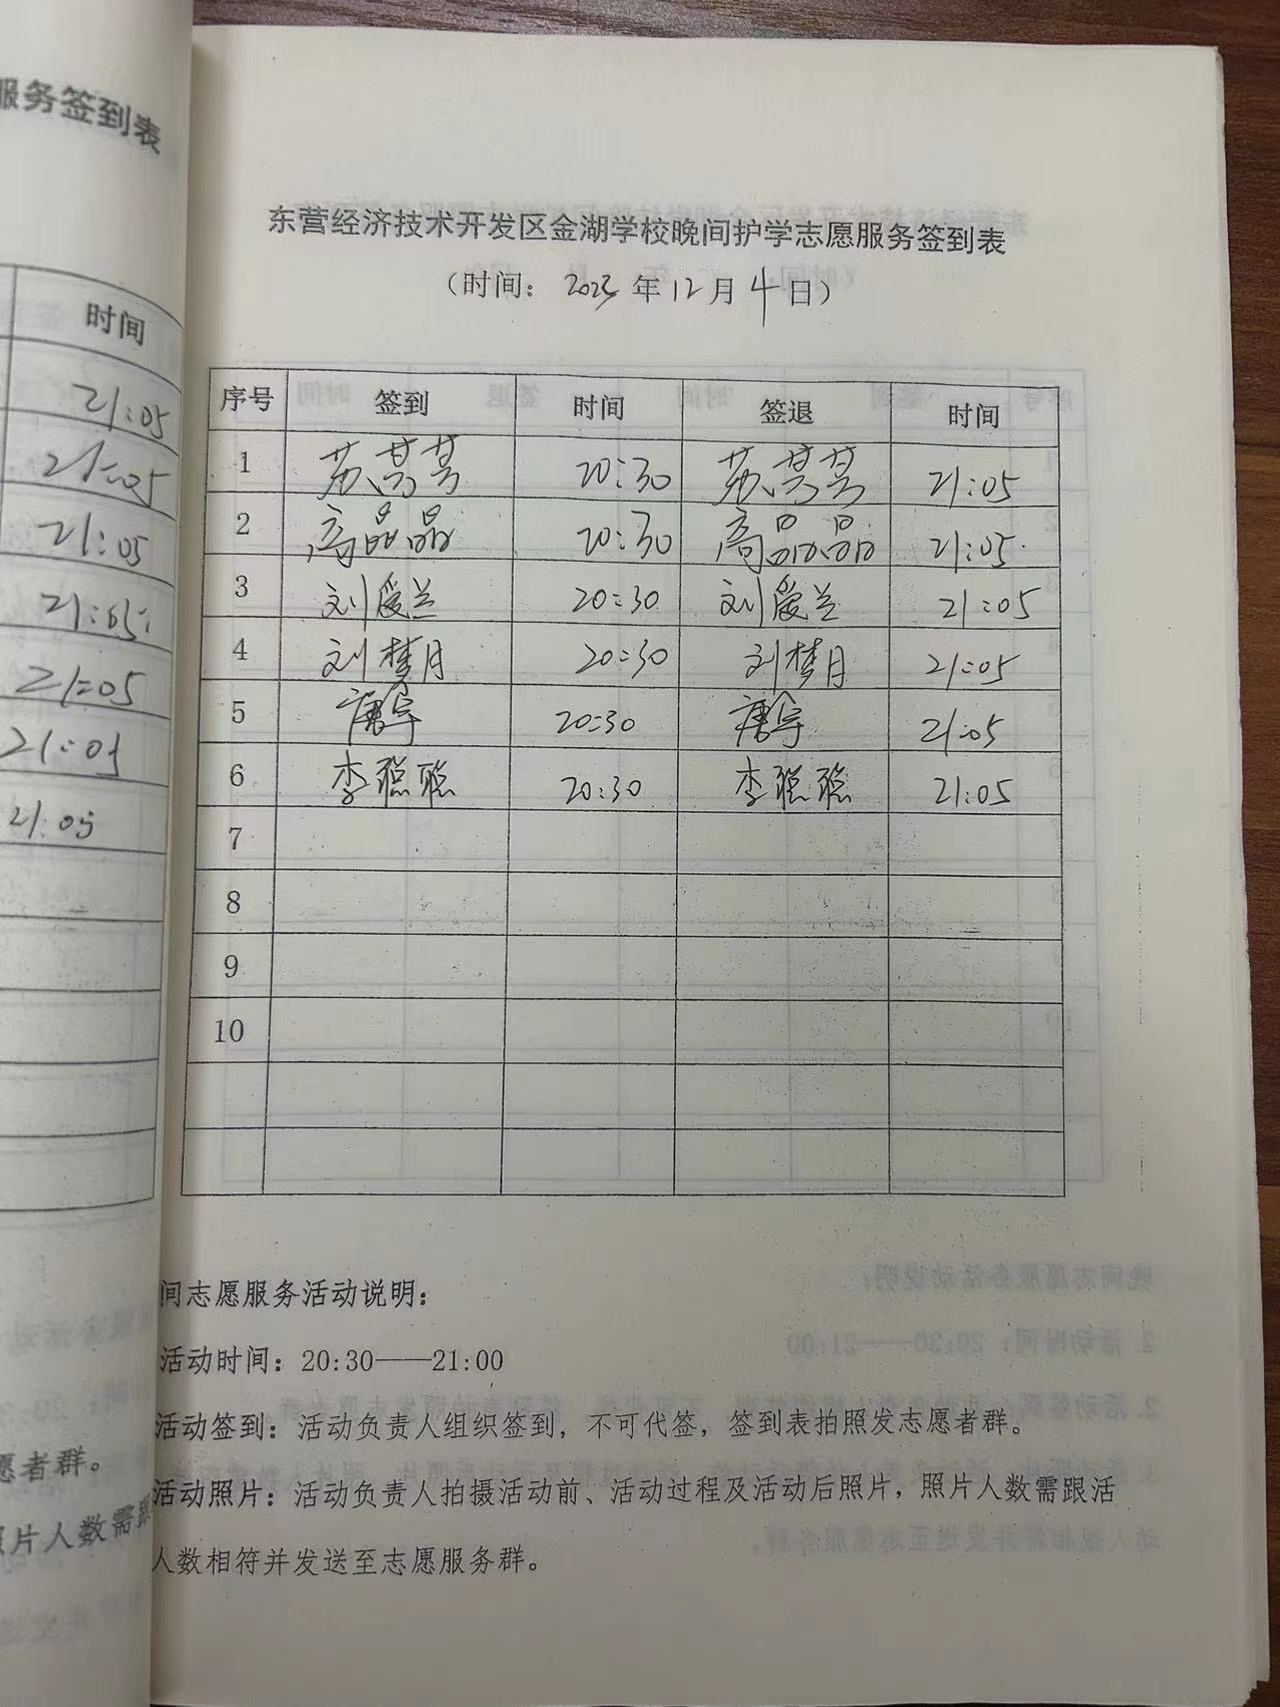 服务签到表
时间
21:05
21:05
21:05
21:05
21:05
21:05
21:05
愿者群。
照片人数需跟
东营经济技术开发区金湖学校晚间护学志愿服务签到表
(时间: 2023年12月4日)
序号 签到 时间 签退 时间
1 苏芳芳 20:30 苏芳芳 21:05
2 高晶晶 20:30 高晶晶 21:05
3 刘爱兰 20:30 刘爱兰 21:05
4 刘梦月 20:30 刘梦月 21:05
5 唐宇 20:30 唐宇 21:05
6 李聪聪 20:30 李聪聪 21:05
7
8
9
10
间志愿服务活动说明:
活动时间: 20:30——21:00
活动签到: 活动负责人组织签到, 不可代签, 签到表拍照发志愿者群。
活动照片: 活动负责人拍摄活动前、活动过程及活动后照片, 照片人数需跟活
人数相符并发送至志愿服务群。